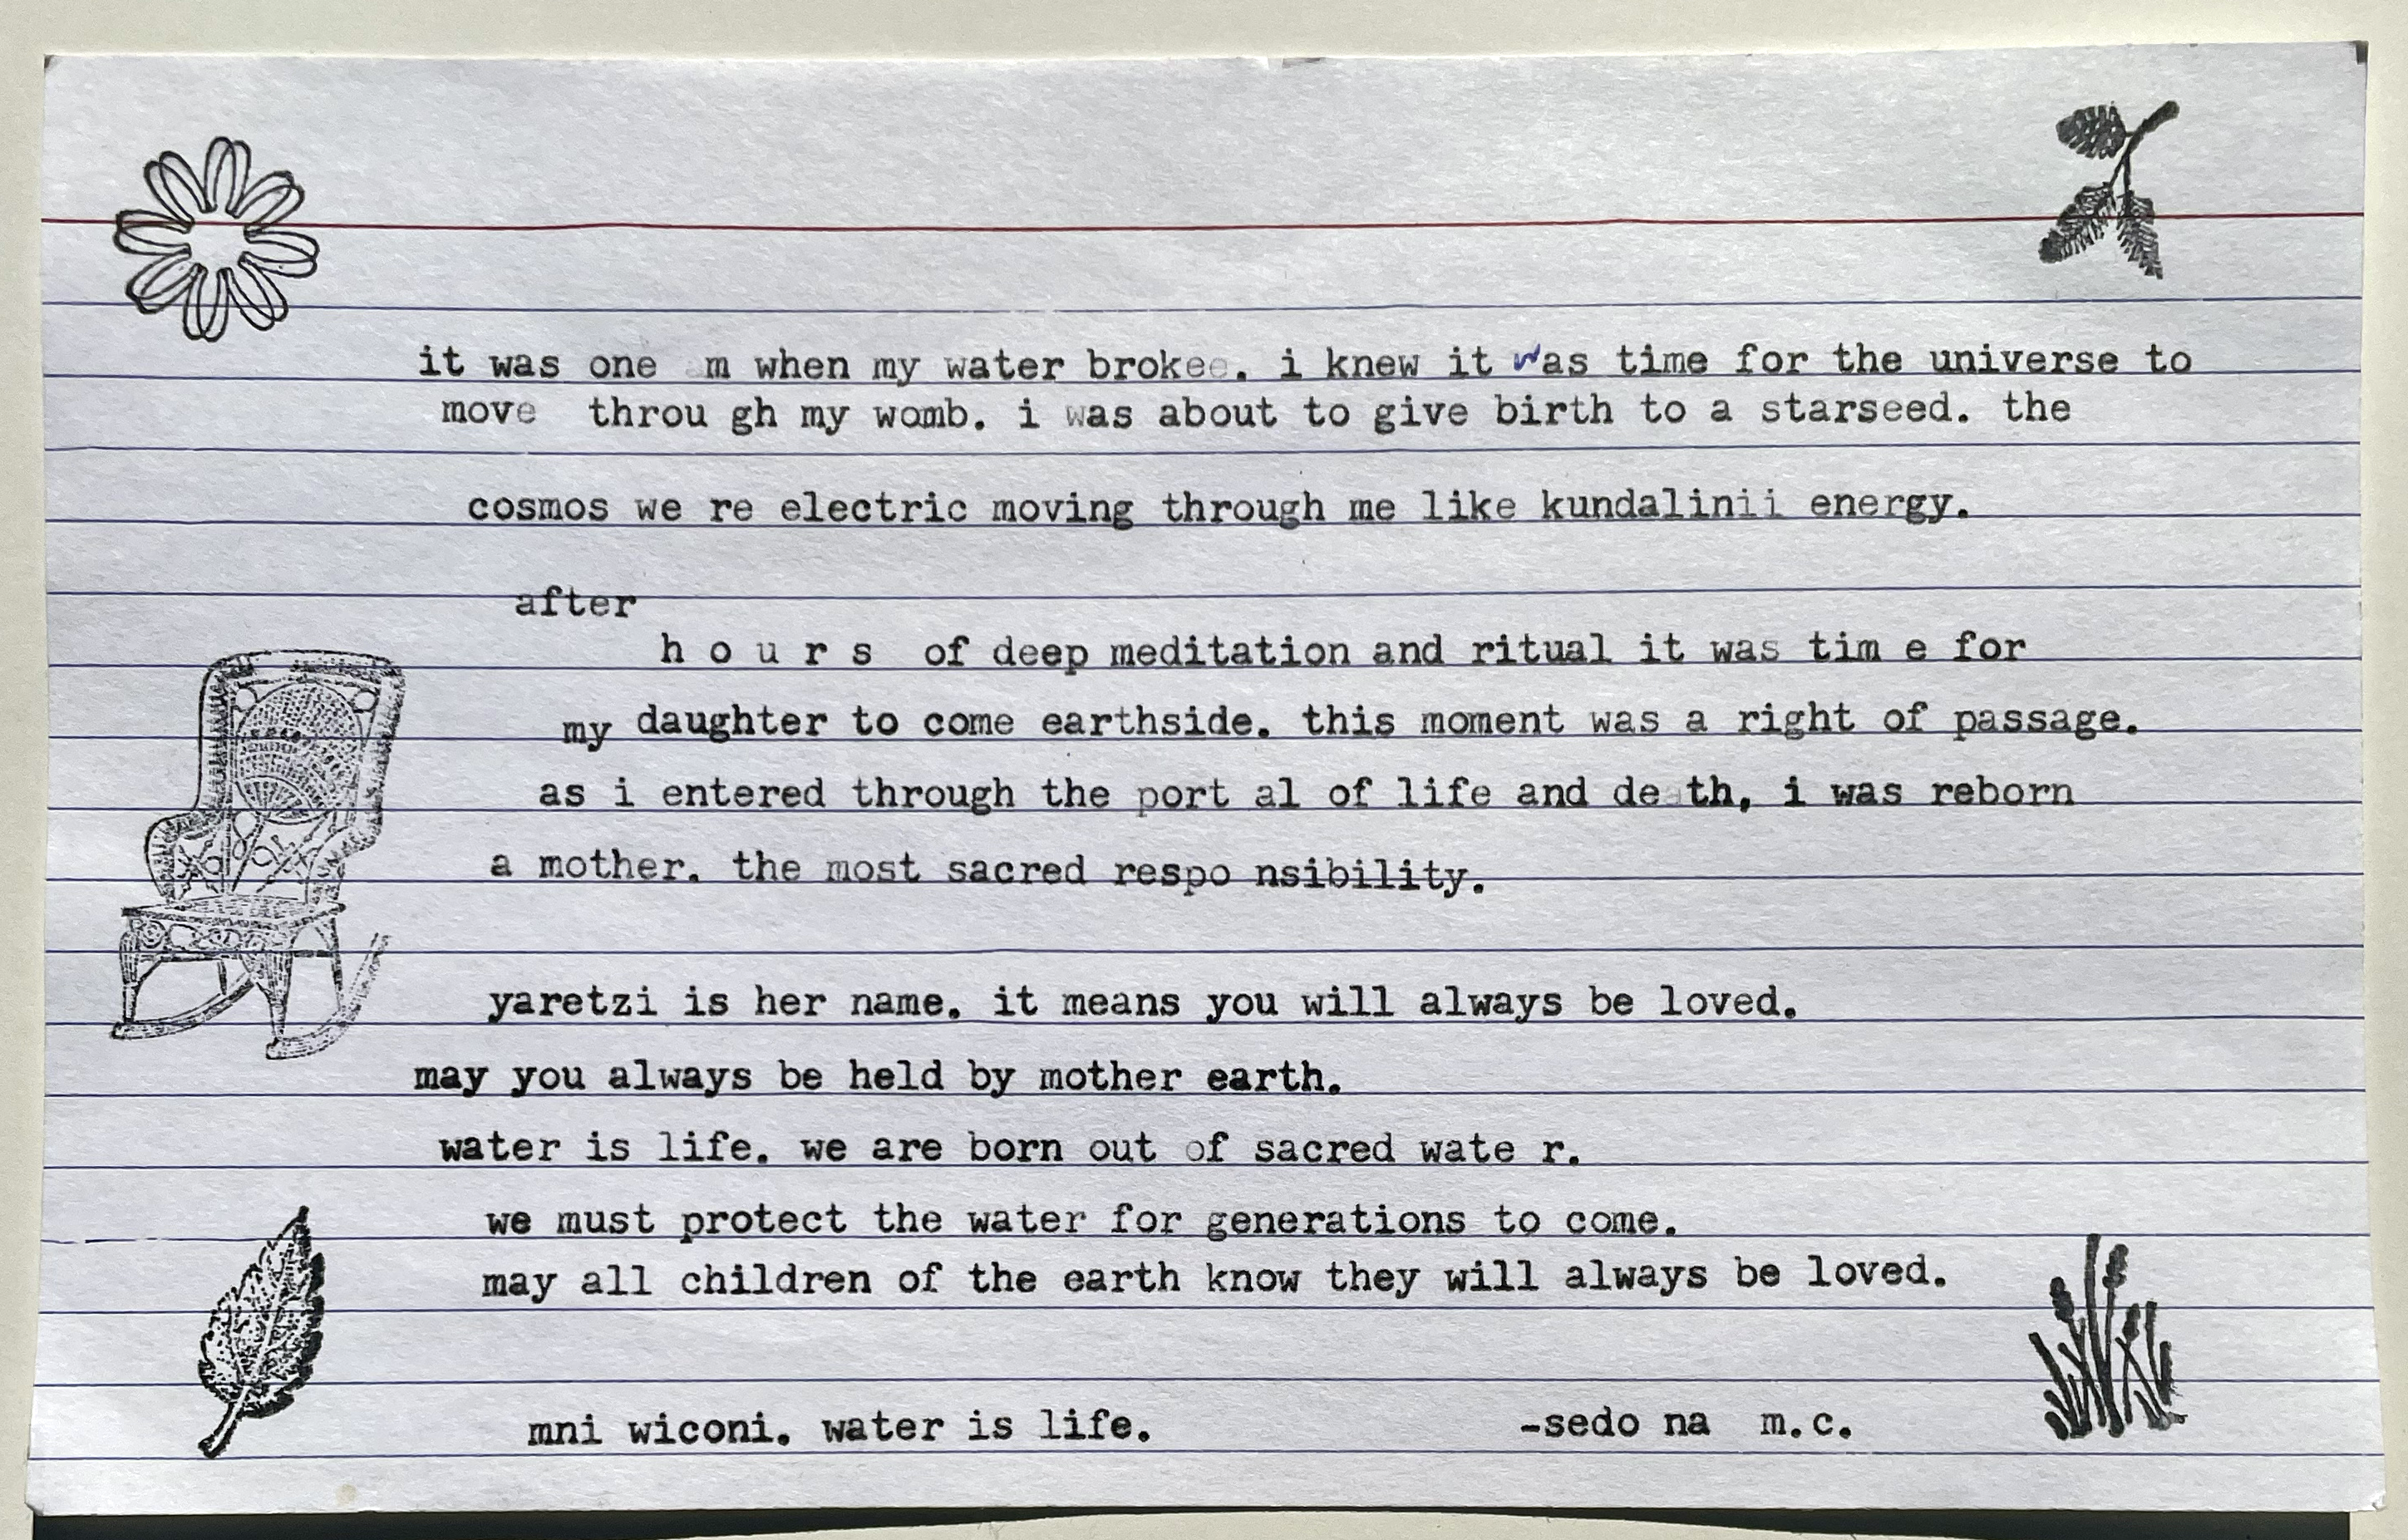 it was one am when my water brokee. i knew it was time for the universe to
move throu gh my womb. i was about to give birth to a starseed. the
cosmos we re electric moving through me like kundalinii energy.
after
h o u r s of deep meditation and ritual it was tim e for
my daughter to come earthside. this moment was a right of passage.
as i entered through the port al of life and death, i was reborn
a mother. the most sacred respo nsibility.
yaretzi is her name. it means you will always be loved.
may you always be held by mother earth.
water is life. we are born out of sacred wate r.
we must protect the water for generations to come.
may all children of the earth know they will always be loved.
mni wiconi. water is life. -sedo na m.c.